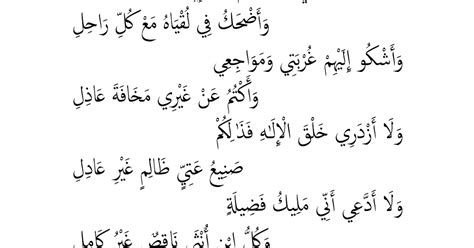 وَأَضْحَكُ فِي لُقْيَاهُ مَعْ كُلِّ رَاحِلِ
وَأَشْكُو إِلَيْهِمْ غُرْبَتِي وَمَوَاجِعِي
وَأَكْتُمُ عَنْ غَيْرِي مَخَافَةَ عَاذِلِ
وَلَا أَزْدَرِي خَلْقَ الْإِلَٰهِ فَذَٰلِكُمْ
صَنِيعُ عَتِيٍّ ظَالِمٍ غَيْرِ عَادِلِ
وَلَا أَدَّعِي أَنِّي مَلِيكُ فَضِيلَةٍ
وَكُلُّ ابْنِ أُنْثَى نَاقِصٌ غَيْرُ كَامِلِ